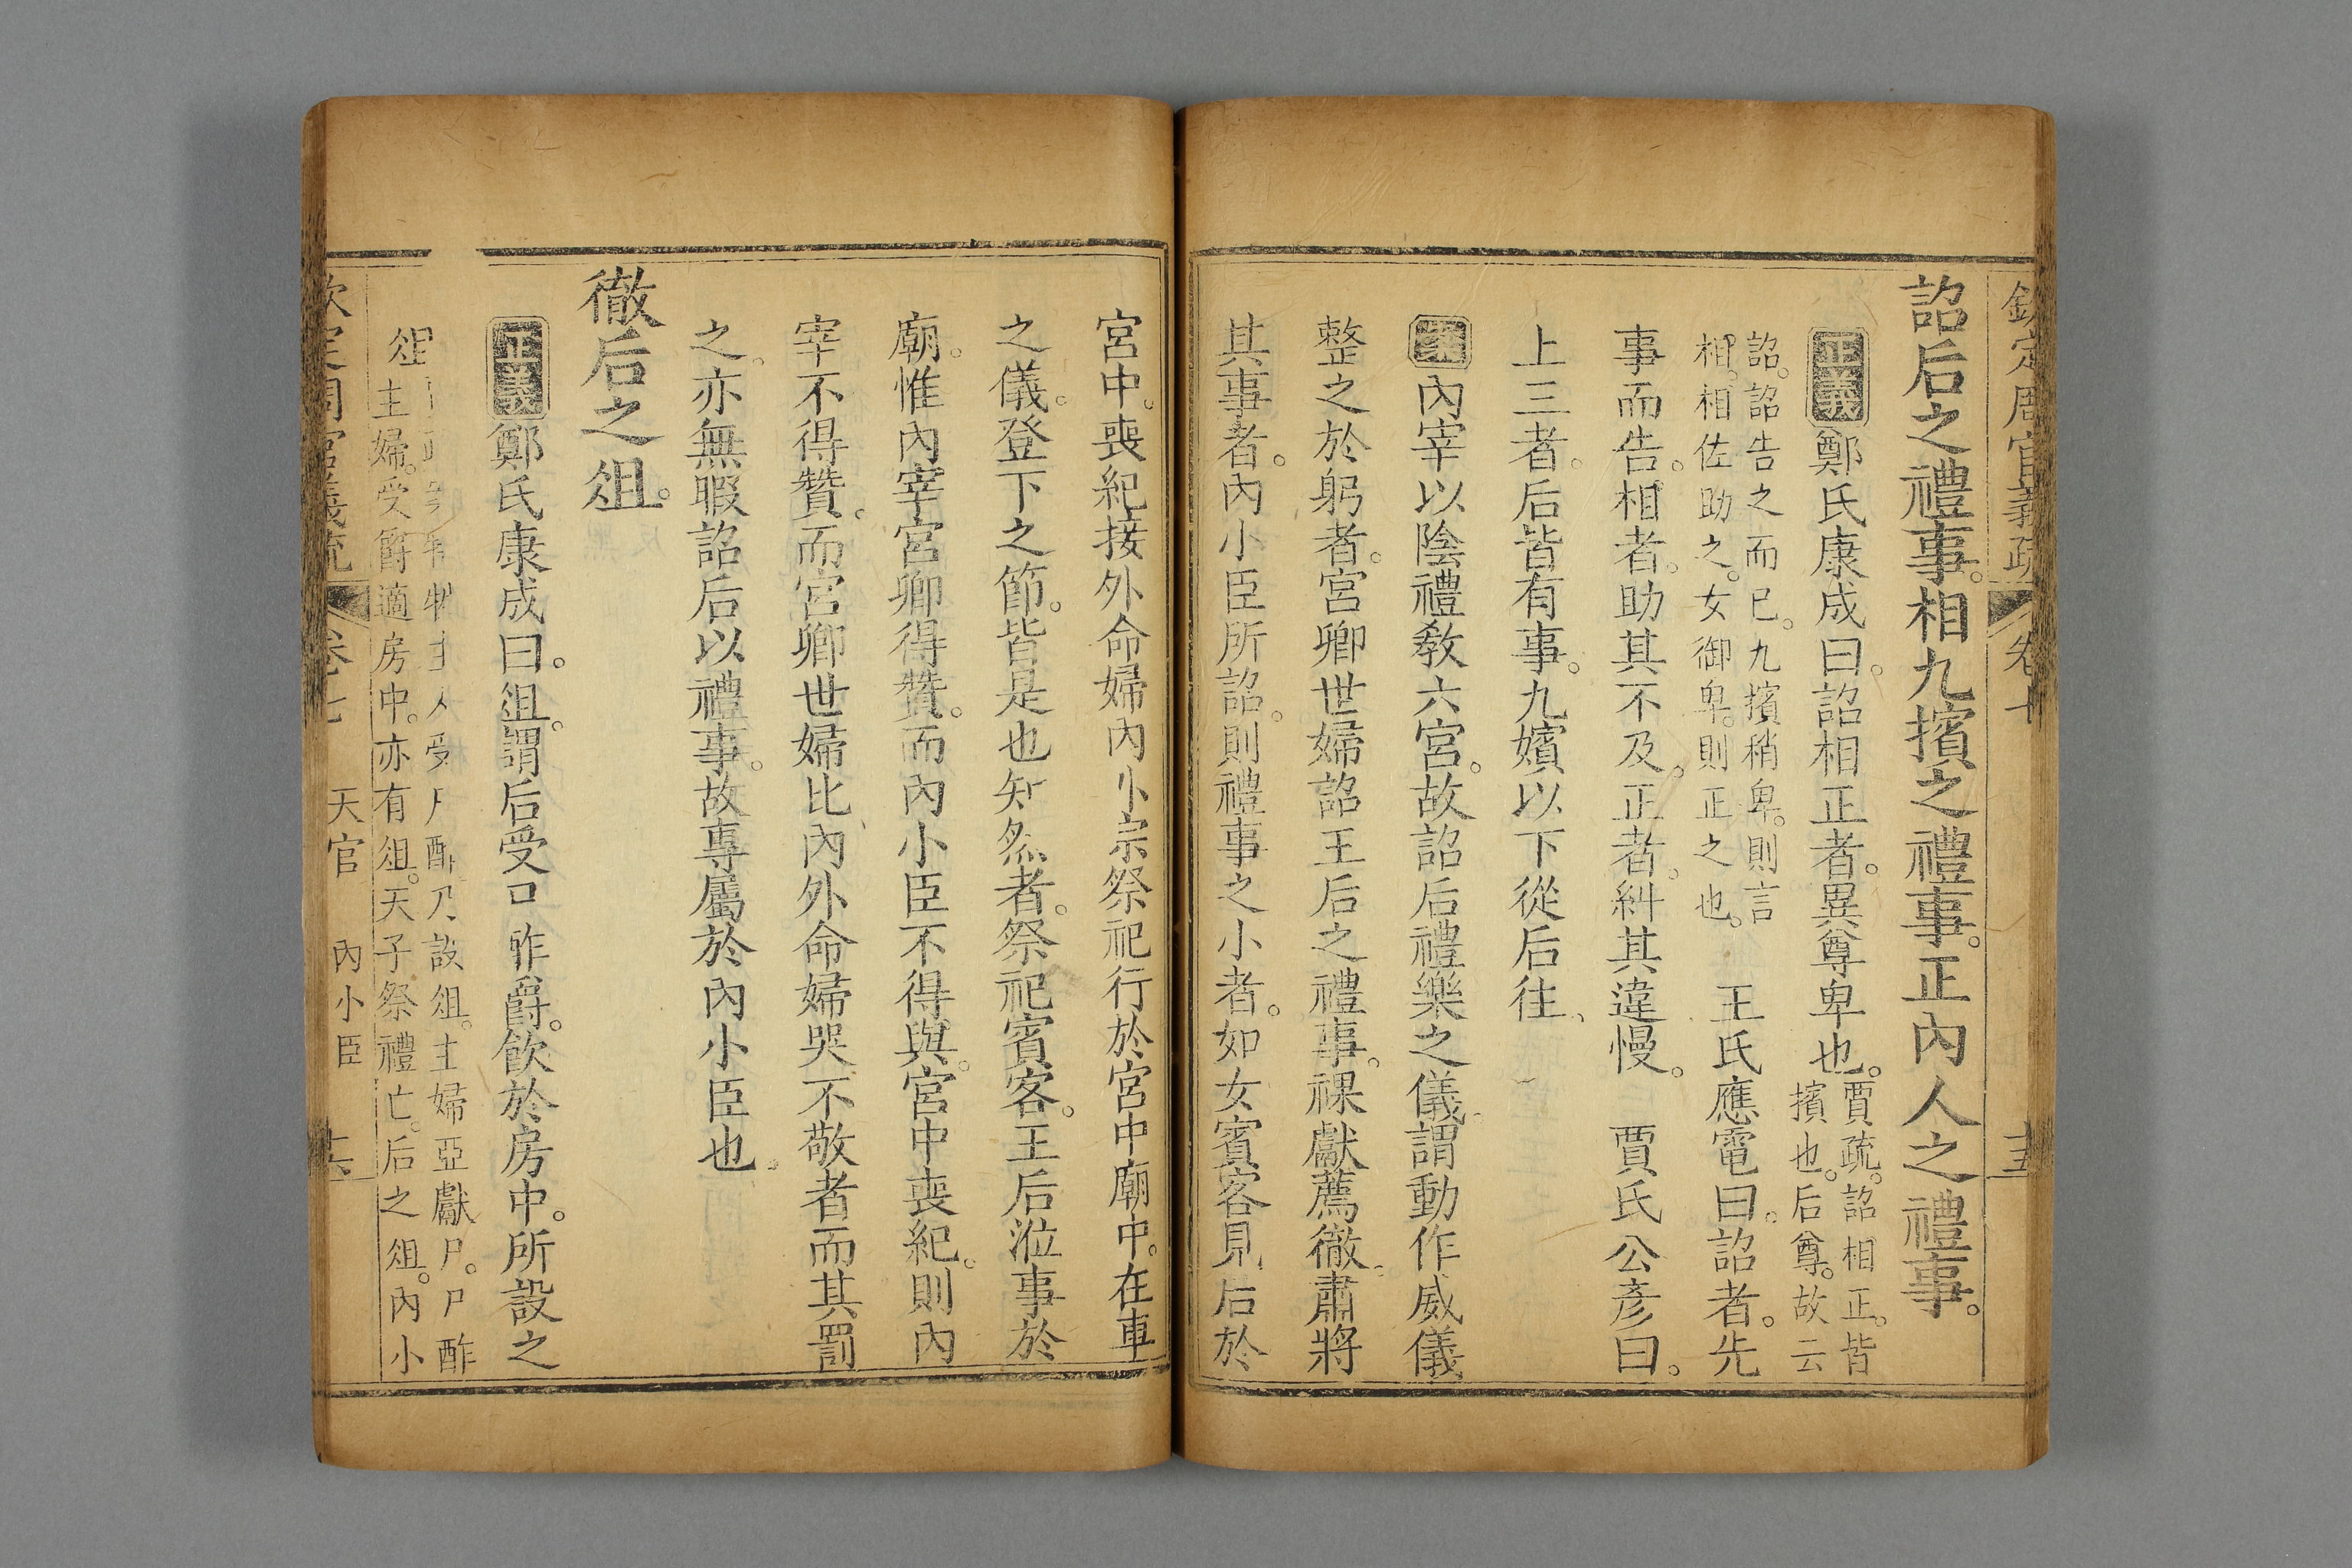 欽定周官義疏 卷七 十五
詔后之禮事。相九擯之禮事。正內人之禮事。
正義 鄭氏康成曰。詔相正者。異尊卑也。賈疏。詔相正。皆
擯也。后尊。故云
詔。詔告之而已。九擯稍卑。則言
相。相佐助之。女御卑。則正之也。 王氏應電曰。詔者。先
事而告。相者。助其不及。正者。糾其違慢。 賈氏公彥曰。
上三者。后皆有事。九嬪以下從后往。
案 內宰以陰禮敎六宮。故詔后禮樂之儀。謂動作威儀
整之於躬者。宮卿世婦詔王后之禮事。祼獻薦徹肅將
其事者。內小臣所詔。則禮事之小者。如女賓客見后於
宮中。喪紀接外命婦內小宗祭祀行於宮中廟中。在車
之儀。登下之節。皆是也知然者。祭祀賓客。王后涖事於
廟。惟內宰宮卿得贊。而內小臣不得與。宮中喪紀。則內
宰不得贊。而宮卿世婦比內外命婦哭不敬者而其罰
之。亦無暇詔后以禮事。故專屬於內小臣也。
徹后之俎。
正義 鄭氏康成曰。俎。謂后受尸酢爵。飮於房中。所設之
俎
主人受尸酢乃設俎。主婦亞獻尸。尸酢
主婦。受爵適房中。亦有俎。天子祭禮亡。后之俎。內小
欽定周官義疏 卷七 天官 內小臣 十六